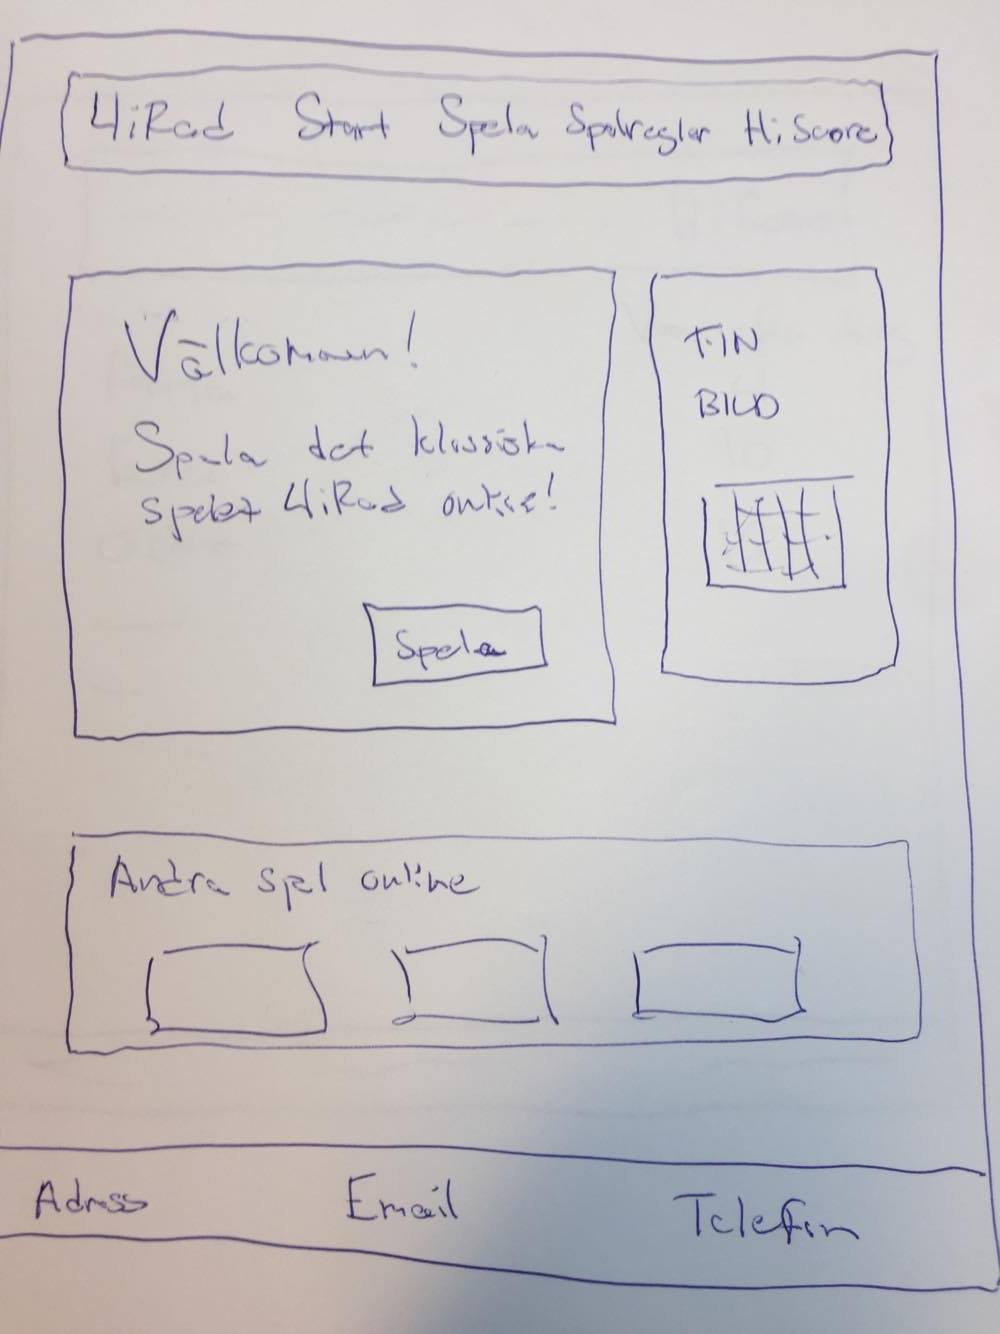 4iRad Start Spela Spelregler HiScore
Välkommen!
Spela det klassiska
spelet 4iRad online!
Spela
FIN
BILD
Andra spel online
Adress Email Telefon